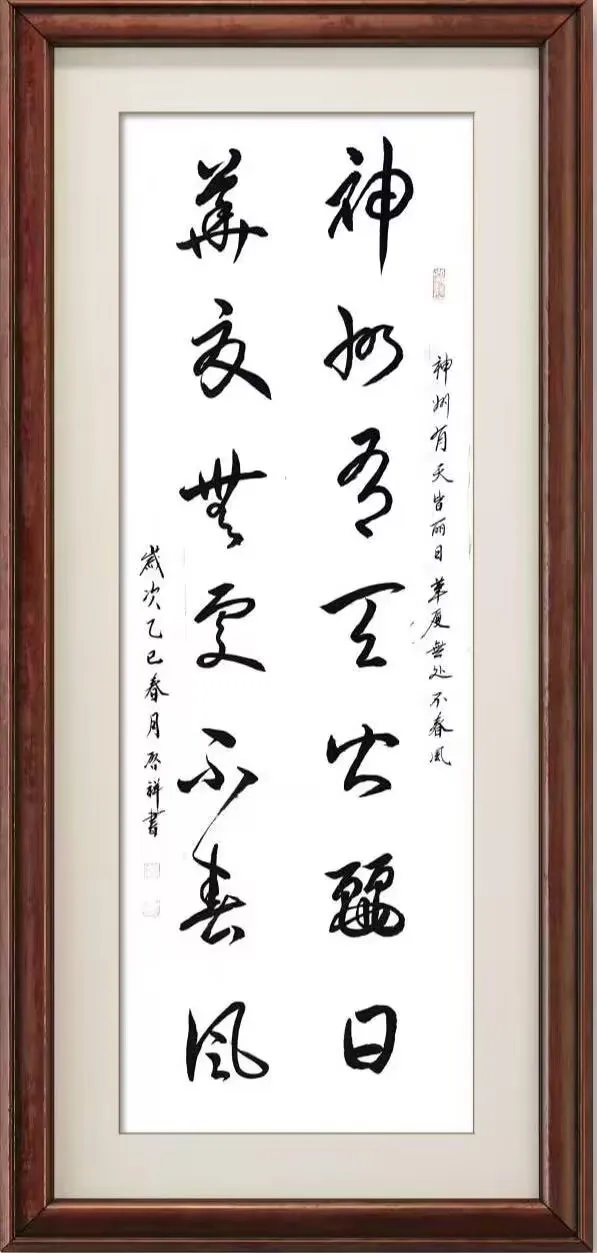 神州有天皆麗日
華夏無處不春風
神州有天皆丽日華厦無处不春風
歲次乙巳春月啓祥書